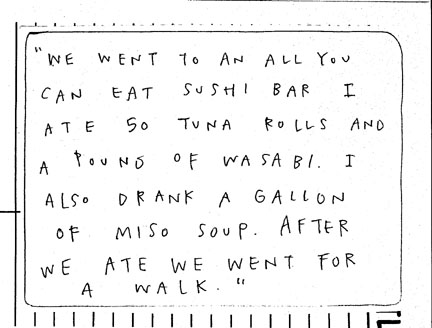 "WE WENT TO AN ALL YOU
CAN EAT SUSHI BAR I
ATE 50 TUNA ROLLS AND
A POUND OF WASABI. I
ALSO DRANK A GALLON
OF MISO SOUP. AFTER
WE ATE WE WENT FOR
A WALK."